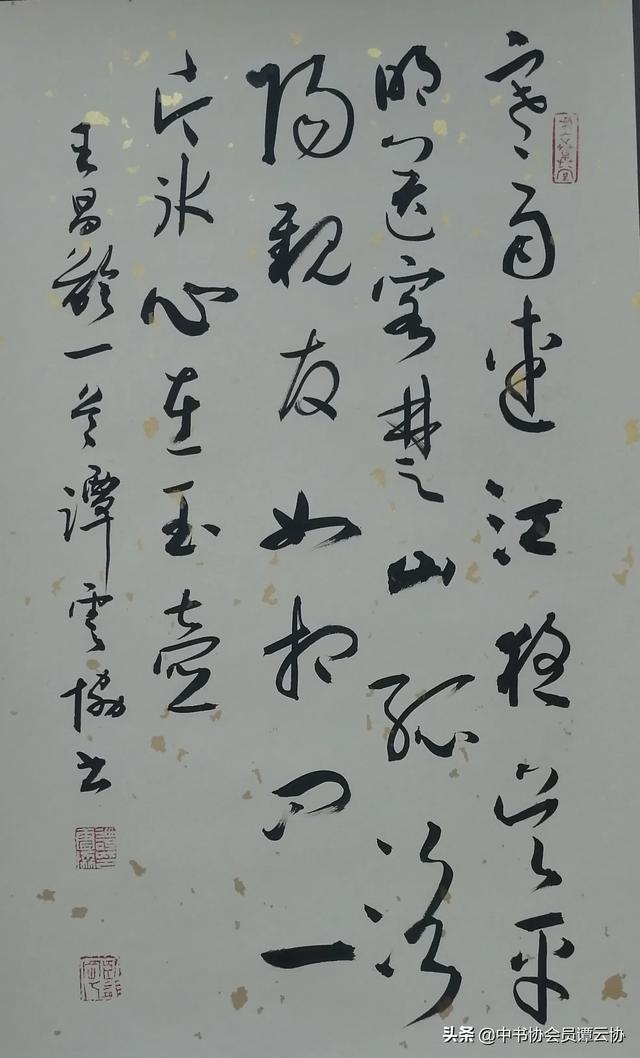 寒雨連江夜入吴平
明送客楚山孤洛
陽親友如相問一
片冰心在玉壺
王昌齡一首譚雲協书
头条 @中书协会员谭云协